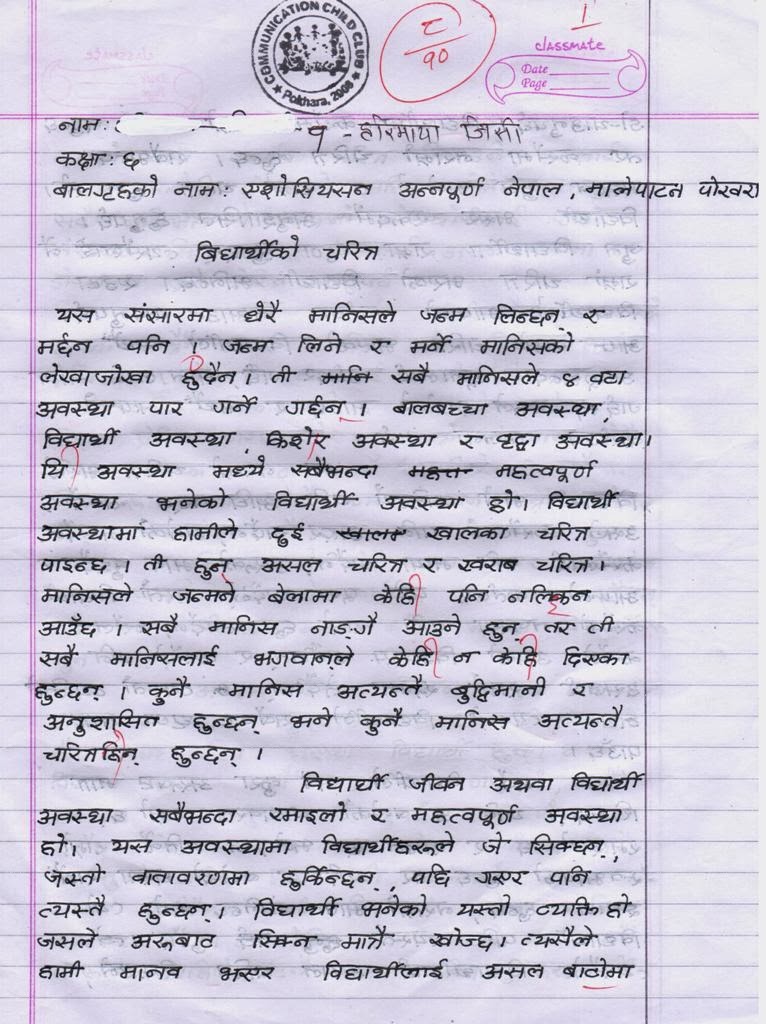 COMMUNICATION CHILD CLUB
Pokhara, 2008
८/१०
1
classmate
Date
Page
नाम:
१ - हरिमाया जिसी
कक्षा: ६
बालगृहको नाम: एशोसियसन अन्नपूर्ण नेपाल, मालेपाटन पोखरा
बिद्यार्थीको चरित्र
यस संसारमा धेरै मानिसले जन्म लिन्छन् र
मर्छन पनि । जन्म लिने र मर्ने मानिसको
लेखाजोखा हुदैन । ती मानि सबै मानिसले ४ वटा
अवस्था पार गर्ने गर्छन् । बालबच्चा अवस्था,
विद्यार्थी अवस्था, किशोर अवस्था र वृद्धा अवस्था।
यि अवस्था मध्ये सबैभन्दा महत्वपूर्ण
अवस्था भनेको विद्यार्थी अवस्था हो। विद्यार्थी
अवस्थामा हामीले दुई खालका चरित्र
पाइन्छ । ती हुन् असल चरित्र र खराब चरित्र।
मानिसले जन्मने बेलामा केहि पनि नलिकन
आउँछ । सबै मानिस नाङ्गै आउने हुन् तर ती
सबै मानिसलाई भगवानले केहि न केहि दिएका
हुन्छन् । कुनै मानिस अत्यन्तै बुद्दिमानी र
अनुशासित हुन्छन् भने कुनै मानिस अत्यन्तै
चरित्रहिन् हुन्छन् ।
विद्यार्थी जीवन अथवा विद्यार्थी
अवस्था सबैभन्दा रमाइलो र महत्वपूर्ण अवस्था
हो। यस अवस्थामा विद्यार्थीहरूले जे सिक्छन्,
जस्तो वातावरणमा हुर्किन्छन्, पछि गएर पनि
त्यस्तै हुन्छन्। विद्यार्थी भनेको यस्तो व्यक्ति हो
जसले अरूबाट सिक्न मात्रै खोज्छ। त्यसैले
हामी मानव भएर विद्यार्थीलाई असल बाटोमा